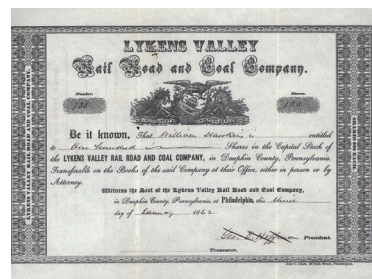 LYKENS VALLEY
Rail Road and Coal Company.
Number Shares
135 100
Be it known, That William Hawkins is entitled
to One hundred Shares in the Capital Stock of
the LYKENS VALLEY RAIL ROAD AND COAL COMPANY, in Dauphin County, Pennsylvania.
Transferable on the Books of the said Company at their Office, either in person or by
Attorney.
Witness the Seal of the Lykens Valley Rail Road and Coal Company,
in Dauphin County, Pennsylvania, at Philadelphia, this third
day of January 1862
Geo. E. Hoffman President.
Treasurer.